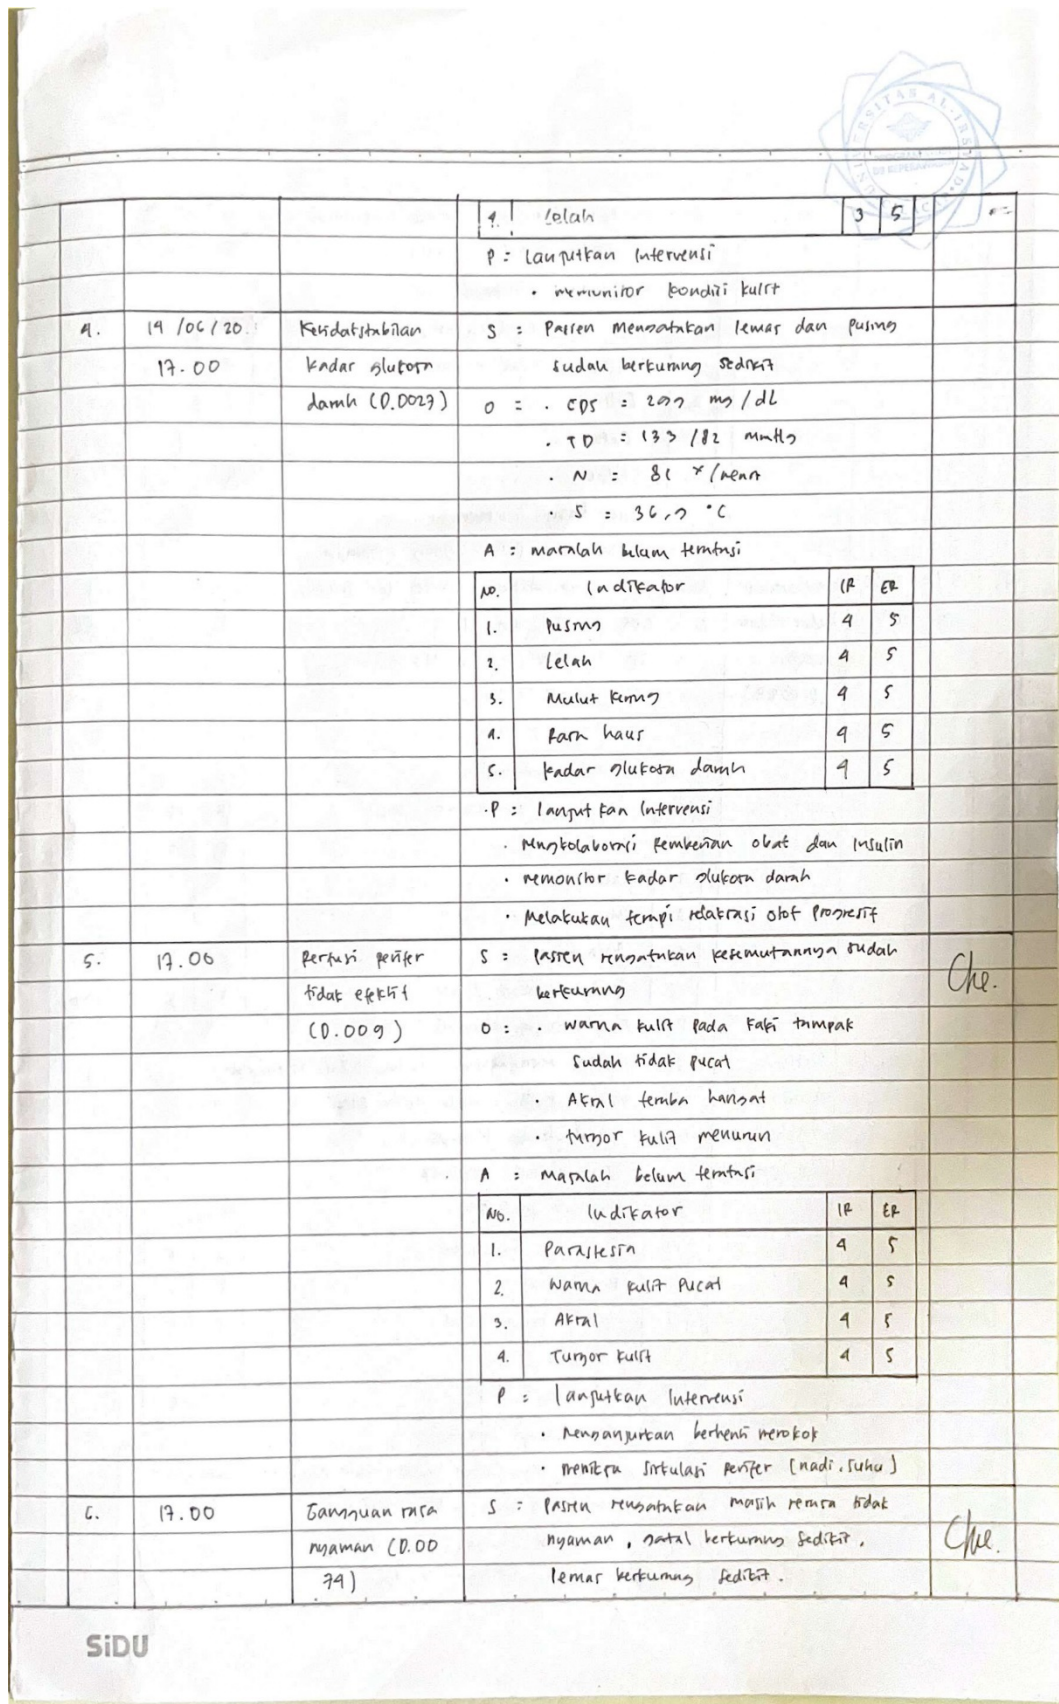 4. Lelah 3 5
P : Lanjutkan Intervensi
• memonitor kondisi kulit
4. 14 /06/20 Ketidakstabilan S : Pasien mengatakan lemas dan pusing
17.00 kadar glukosa sudah berkurang sedikit
darah (D.0027) O = • GDS : 299 mg/dL
• TD : 133/82 mmHg
• N : 81 x/menit
• S : 36,9 °C
A : masalah belum teratasi
No. Indikator IR ER
1. Pusing 4 5
2. Lelah 4 5
3. Mulut kering 4 5
4. Rasa haus 4 5
5. kadar glukosa darah 4 5
P : lanjutkan Intervensi
• Mengkolaborasi pemberian obat dan Insulin
• memonitor kadar glukosa darah
• Melakukan terapi relaksasi otot Progresif
5. 17.00 Perfusi perifer S : Pasien mengatakan kesemutannya sudah Che.
tidak efektif berkurang
(D.009) O : • warna kulit pada kaki tampak
sudah tidak pucat
• Akral teraba hangat
• turgor kulit menurun
A : Masalah belum teratasi
No. Indikator IR ER
1. Parastesia 4 5
2. Warna kulit Pucat 4 5
3. Akral 4 5
4. Turgor kulit 4 5
P : lanjutkan Intervensi
• Menganjurkan berhenti merokok
• sirkulasi perifer (nadi, suhu)
6. 17.00 Gangguan rasa S : Pasien mengatakan masih merasa tidak Che.
nyaman (D.00 nyaman, gatal berkurang sedikit,
74) lemas berkurang sedikit.
SiDU